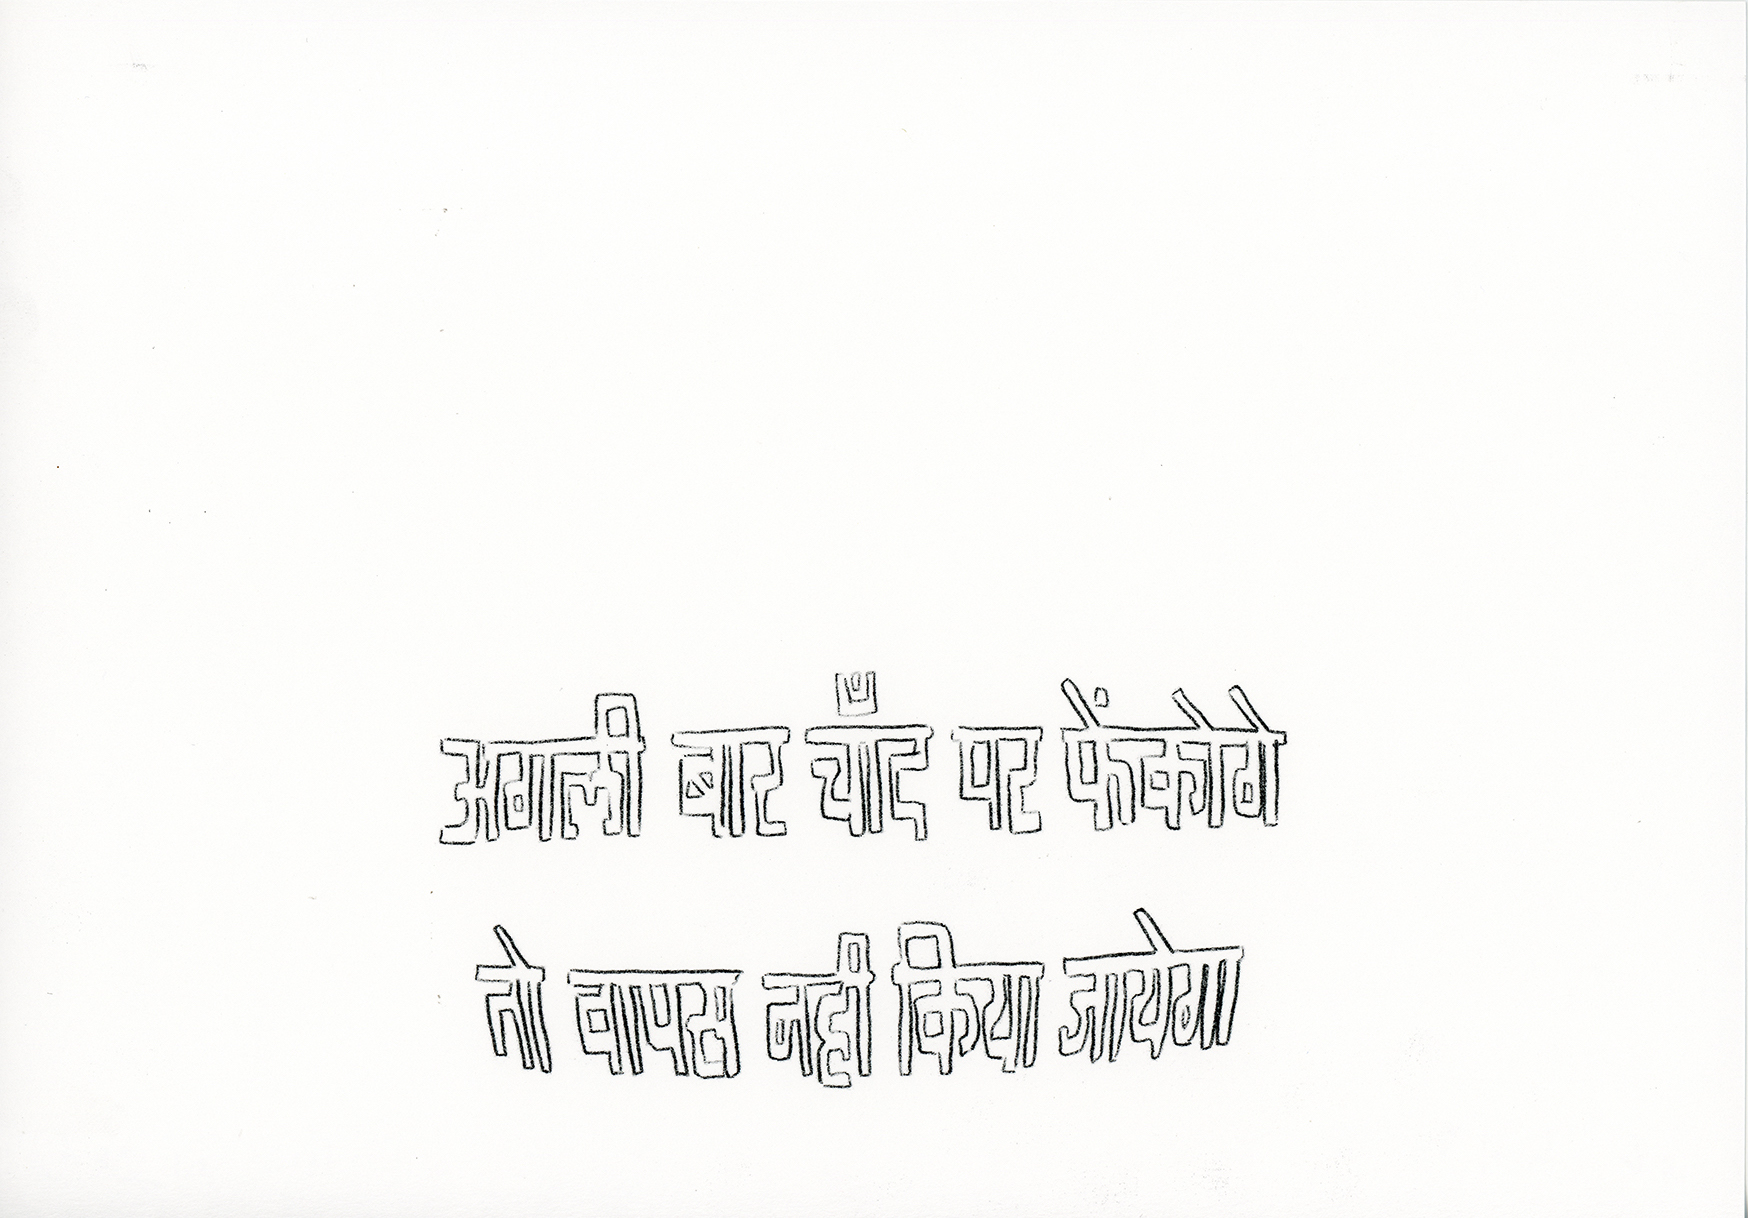 अगली बार चाँद पर फेंकोगे
तो वापस नही किया जायेगा